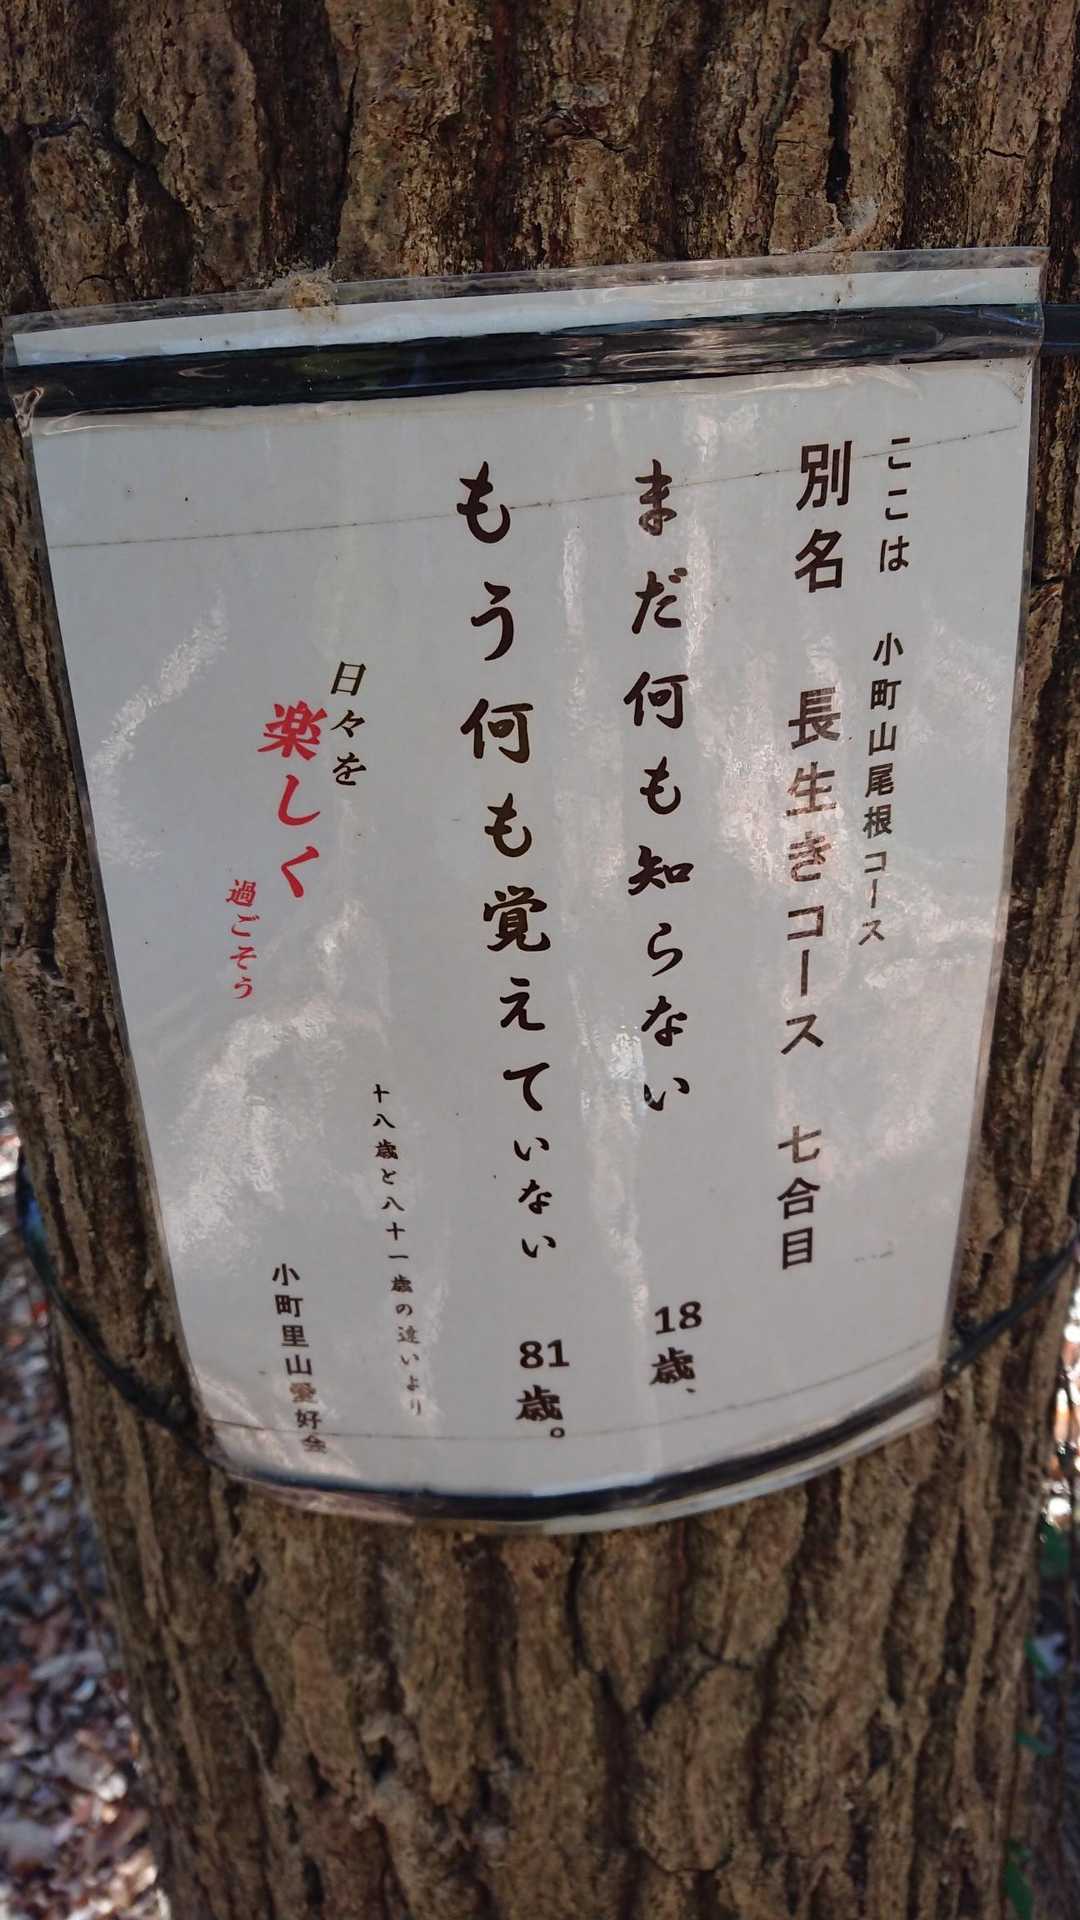 ここは　小町山尾根コース
別名　長生きコース　七合目
まだ何も知らない　18歳、
もう何も覚えていない　81歳。
十八歳と八十一歳の違いより
日々を
楽しく
過ごそう
小町里山愛好会